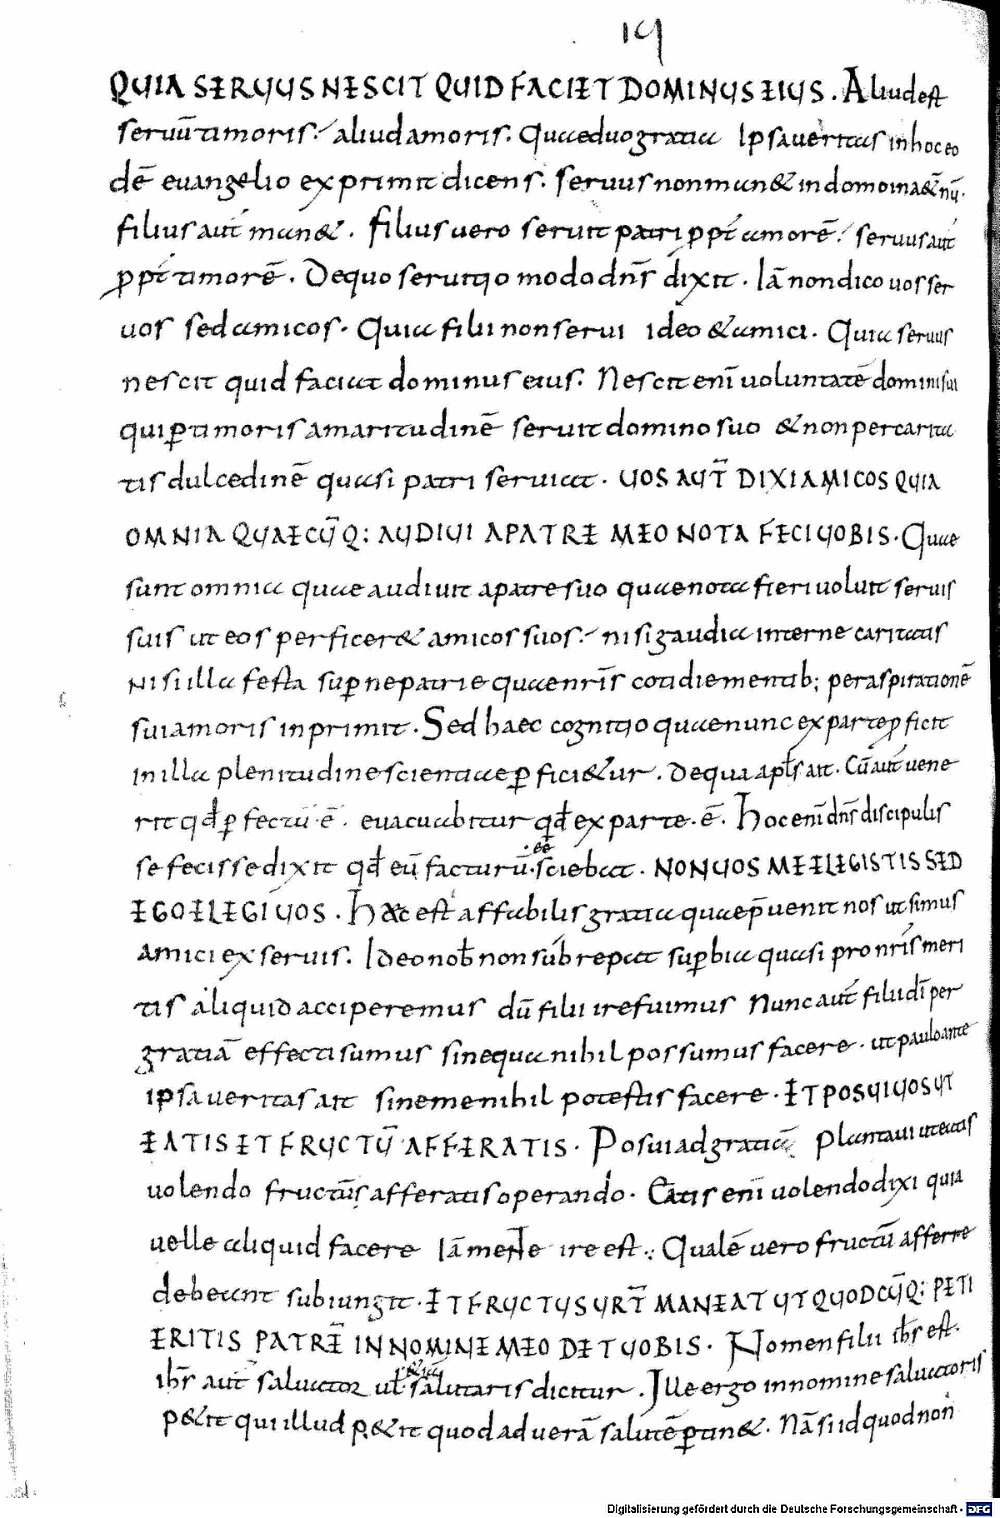 19
QUIA SERUUS NESCIT QUID FACIET DOMINUS EIUS. Aliud est
seruū timoris. aliud amoris. Quae duo gratia Ipsa ueritas in hoc eo
dē euangelio exprimit dicens. seruus non man& in domo in a&̄nū.
filius aut̄ man&. filius uero seruit patri ꝓpt̄ amorē. seruus aut̄
ꝓpt̄ timorē. De quo seruitio modo dn̄s dixit. Iā non dico uos ser
uos sed amicos. Quia filii non serui ideo & amici. Quia seruus
nescit quid faciat dominus eius. Nescit enī uoluntatē domini sui
qui ꝑ timoris amaritudinē seruit domino suo & non per carita
tis dulcedinē quasi patri seruiat. UOS AUT̄ DIXI AMICOS QUIA
OMNIA QUAECŪQ; AUDIUI A PATRE MEO NOTA FECI UOBIS. Quae
sunt omnia quae audiuit a patre suo quae nota fieri uoluit seruis
suis ut eos perficer& amicos suos. nisi gaudia interne caritatis
nisi illa festa suꝑne patrie quae nr̄is cotidie mentib; per aspirationē
sui amoris inprimit. Sed haec cognitio quae nunc ex parte ꝑficit
in illa plenitudine scientiae ꝑfici&ur. De qua apl̄s ait. Cū aut̄ uene
rit qđ ꝑfectū ē. euacuabitur qđ ex parte. ē. Hoc enī dn̄s discipulis
se fecisse dixit qđ eū facturū. eē sciebat. NON UOS ME ELEGISTIS SED
EGO ELEGI UOS. Haec est affabilis gratia quae p̄uenit nos ut simus
amici ex seruis. Ideo nob̄ non subrepat suꝑbia quasi pro nr̄is meri
tis aliquid acciperemus dū filii irę fuimus Nunc aut̄ filii dī per
gratiā effecti sumus sine qua nihil possumus facere. ut paulo ante
ipsa ueritas ait sine me nihil potestis facere. ET POSUI UOS UT
EATIS ET FRUCTŪ AFFERATIS. Posui ad gratiā plantaui ut eatis
uolendo fructus afferatis operando. Eatis enī uolendo dixi quia
uelle aliquid facere Iā mente ire est. Qualē uero fructū afferre
debeant subiungit. ET FRUCTUS UR̄T MANEAT UT QUODCŪQ; PETI
ERITIS PATRĒ IN NOMINE MEO DET UOBIS. Nomen filii ih̄s est.
ih̄s aut̄ saluator ul̄ salutaris dicitur. Ille ergo in nomine saluatoris
p&it qui illud p&it quod ad uerā salutē ꝑtin&. Nā si id quod non
Digitalisierung gefördert durch die Deutsche Forschungsgemeinschaft - DFG